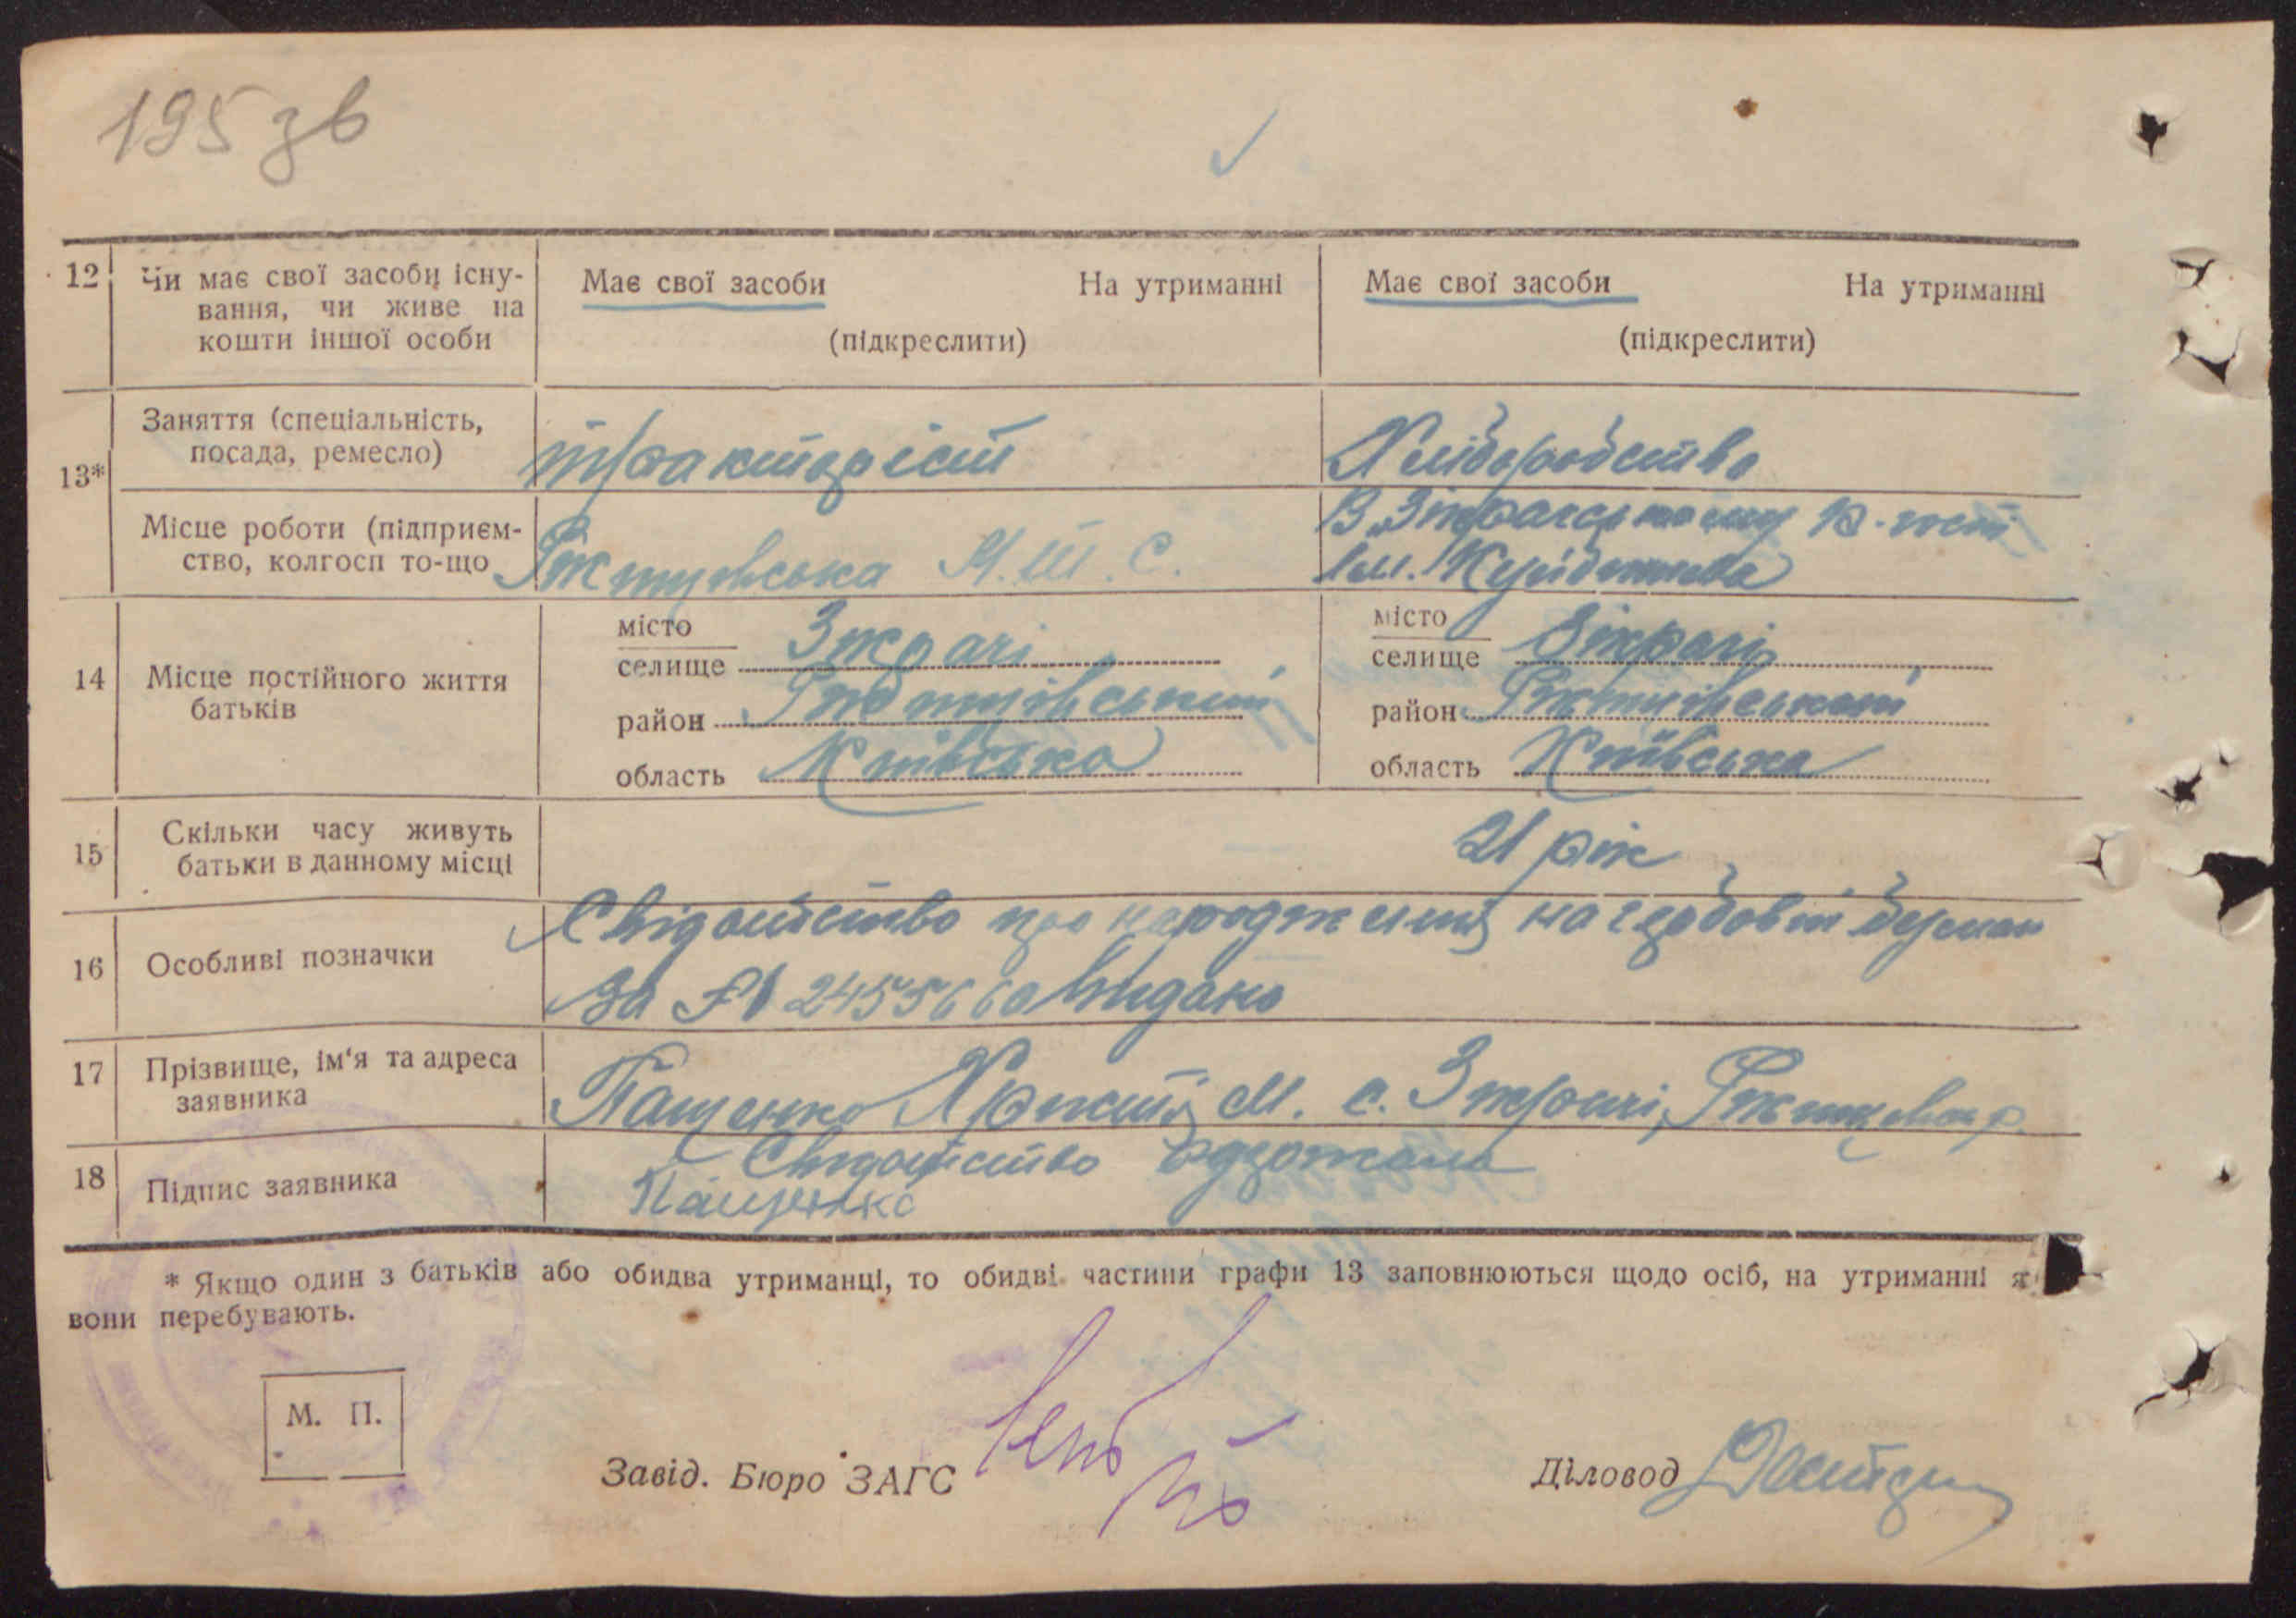 195 зв
12 Чи має свої засоби існу-
вання, чи живе на
кошти іншої особи
Має свої засоби На утриманні
(підкреслити)
Має свої засоби На утриманні
(підкреслити)
13* Заняття (спеціальність,
посада, ремесло)
тракторіст
Хліборобство
Місце роботи (підприєм-
ство, колгосп то-що
Ржищівська М.Т.С.
В
Ім.
14 Місце постійного життя
батьків
місто
селище Зікрачі
район Ржищівський
область Київська
місто
селище Зікрачі
район Ржищівський
область Київська
15 Скільки часу живуть
батьки в данному місці
21 рік
16 Особливі позначки
Свідоцтво про народження на гербовій бумазі
За № 2455660 видано
17 Прізвище, ім'я та адреса
заявника
Пащенко М. с. Зікрачі, Ржищівськ р.
18 Підпис заявника
Свідоцтво одержала
Пащенко
* Якщо один з батьків або обидва утриманці, то обидві частини графи 13 заповнюються щодо осіб, на утриманні я
вони перебувають.
М. П.
Завід. Бюро ЗАГС
Діловод